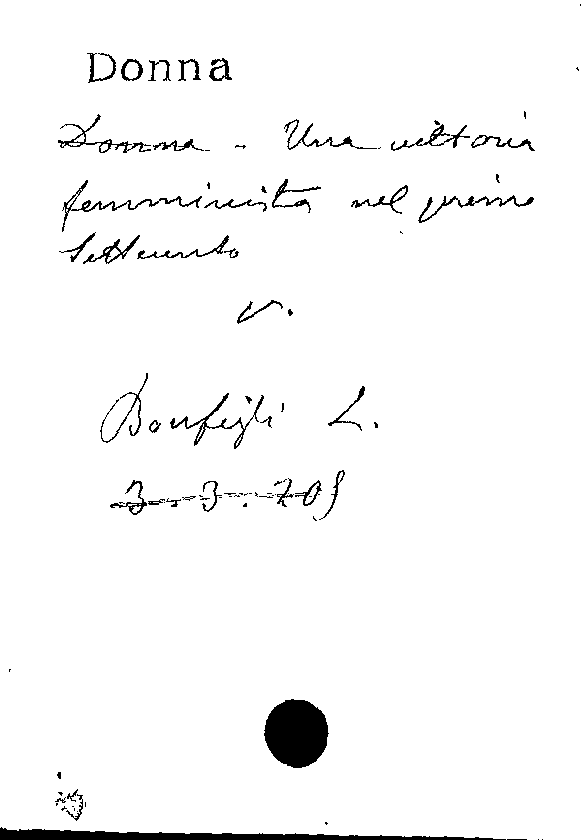 Donna
Donna - Una vittoria
femminista nel primo
Settecento
v.
Bonfigli L.
3.3.205